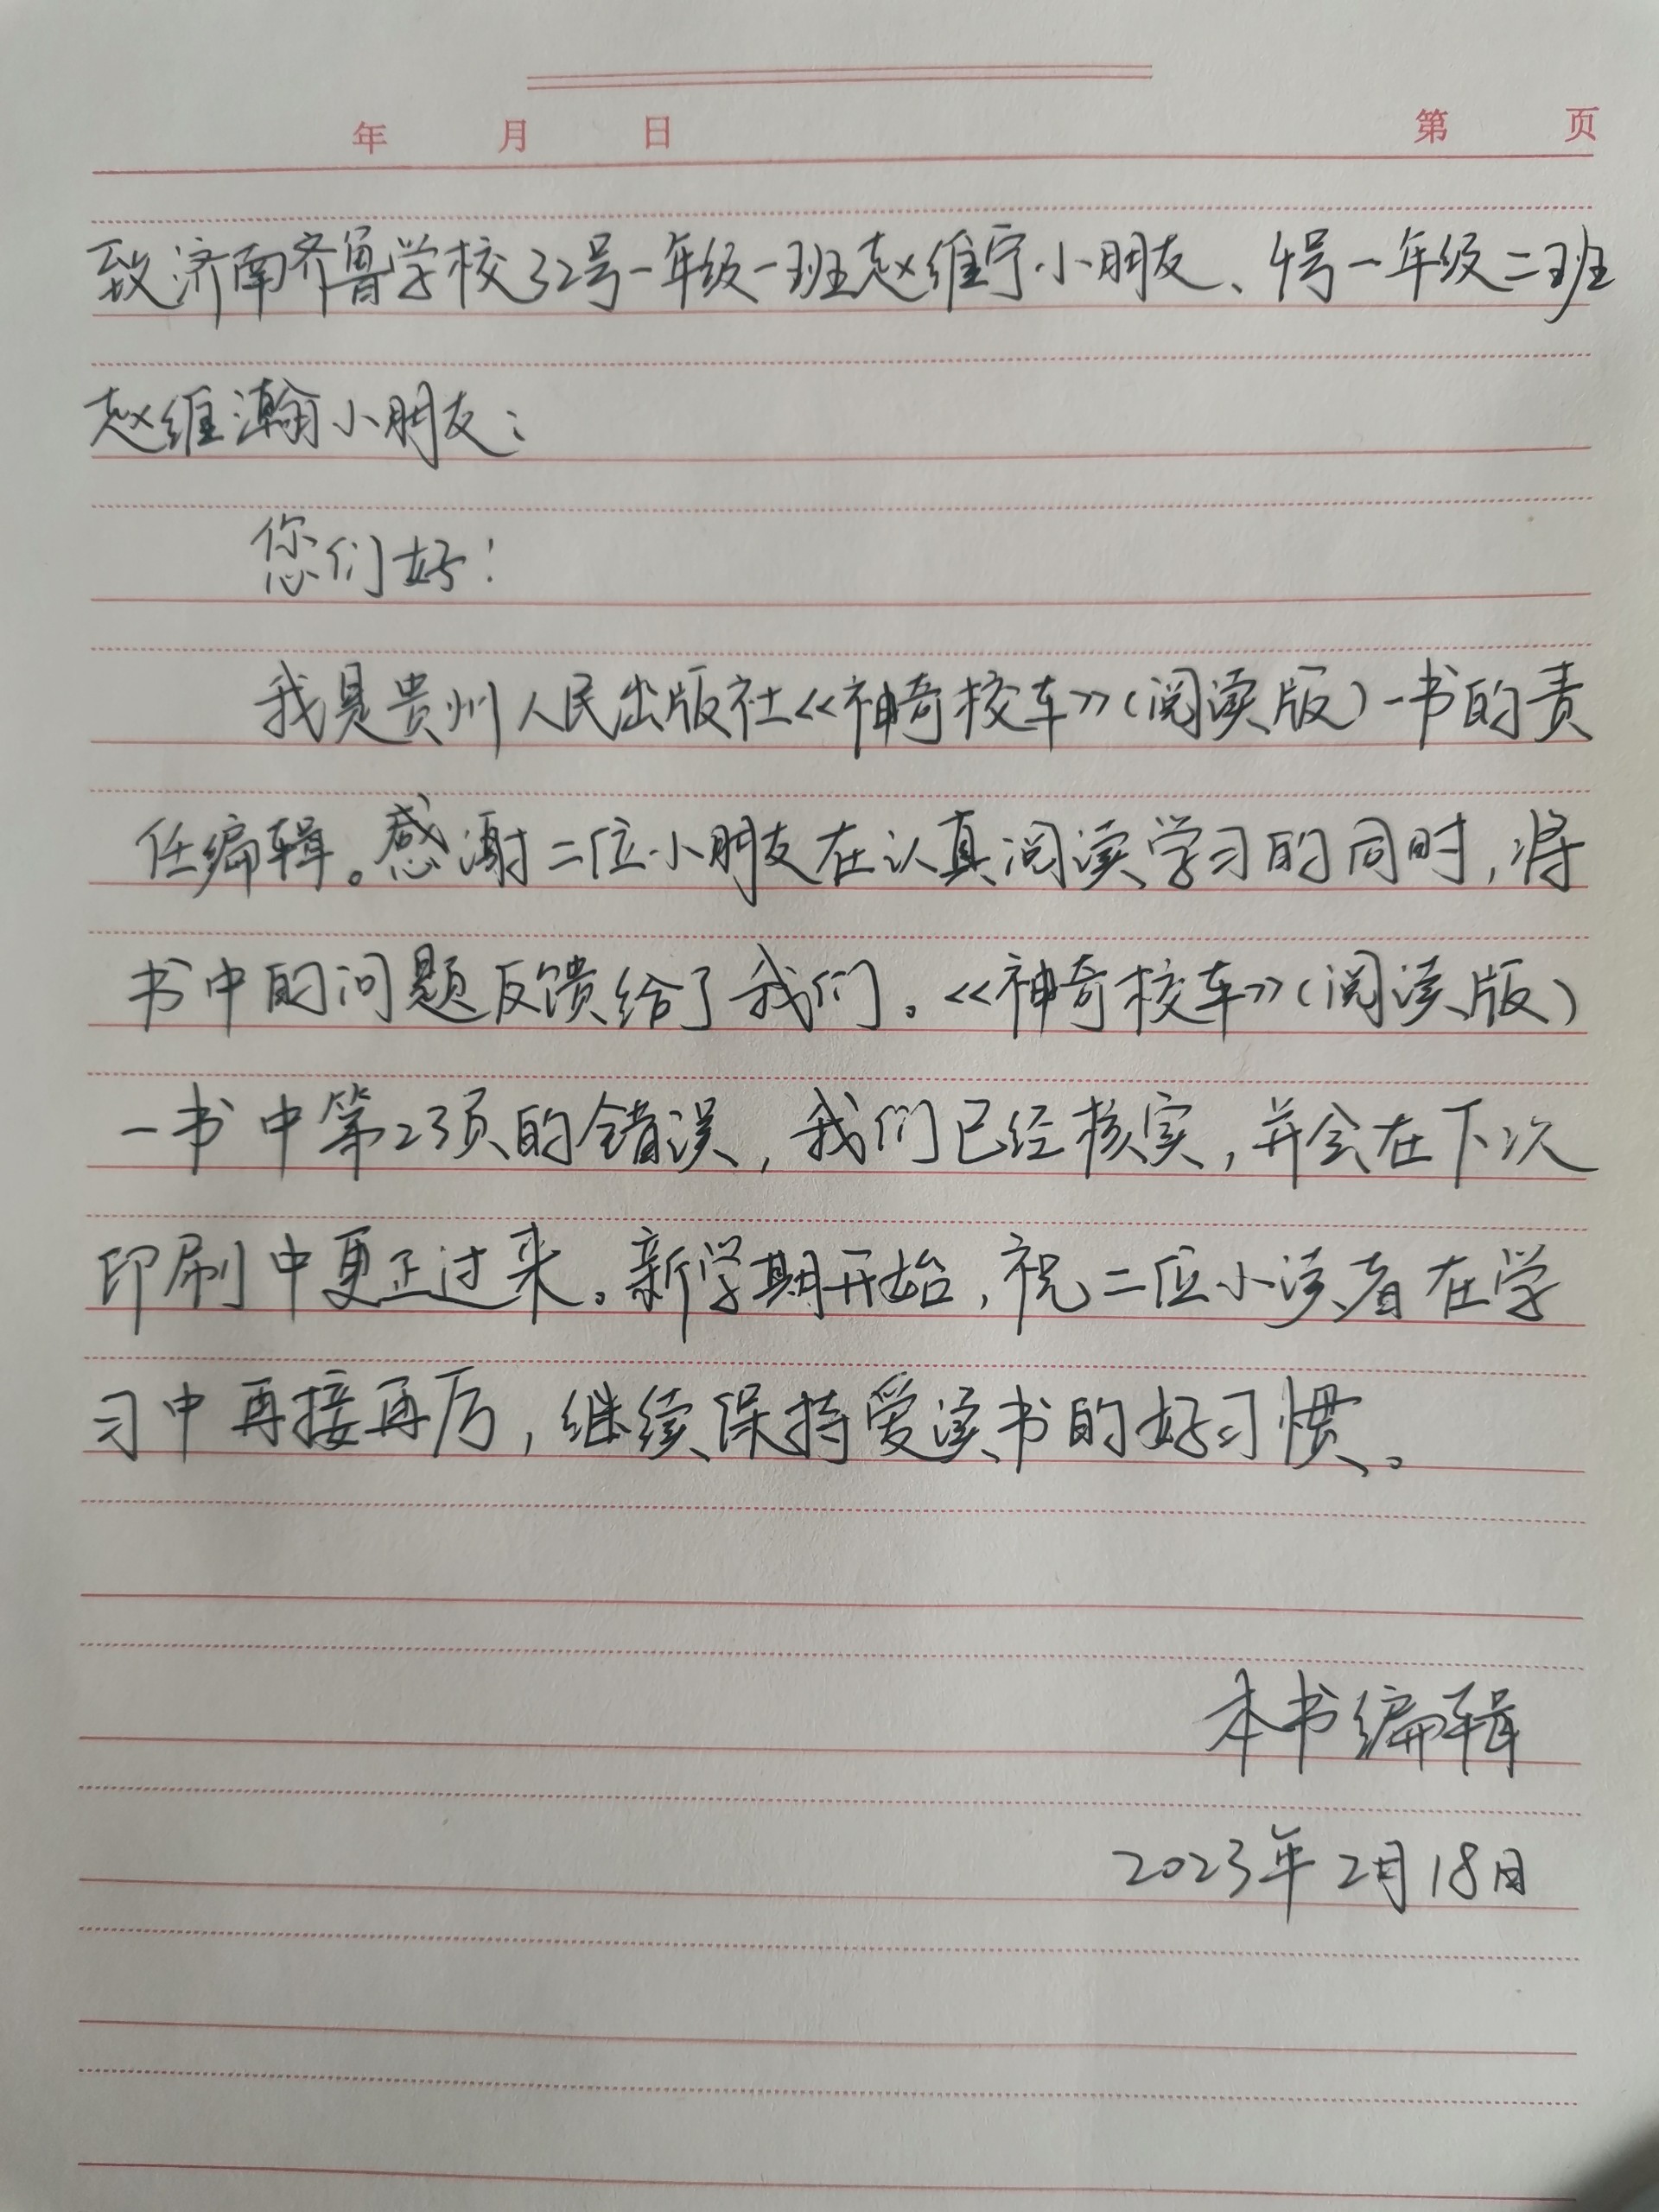 年 月 日 第 页
致济南齐鲁学校32号一年级一班赵维宁小朋友、4号一年级二班
赵维瀚小朋友：
您们好！
我是贵州人民出版社《神奇校车》（阅读版）一书的责
任编辑。感谢二位小朋友在认真阅读学习的同时，将
书中的问题反馈给了我们。《神奇校车》（阅读版）
一书中第23页的错误，我们已经核实，并会在下次
印刷中更正过来。新学期开始，祝二位小读者在学
习中再接再厉，继续保持爱读书的好习惯。
本书编辑
2023年2月18日